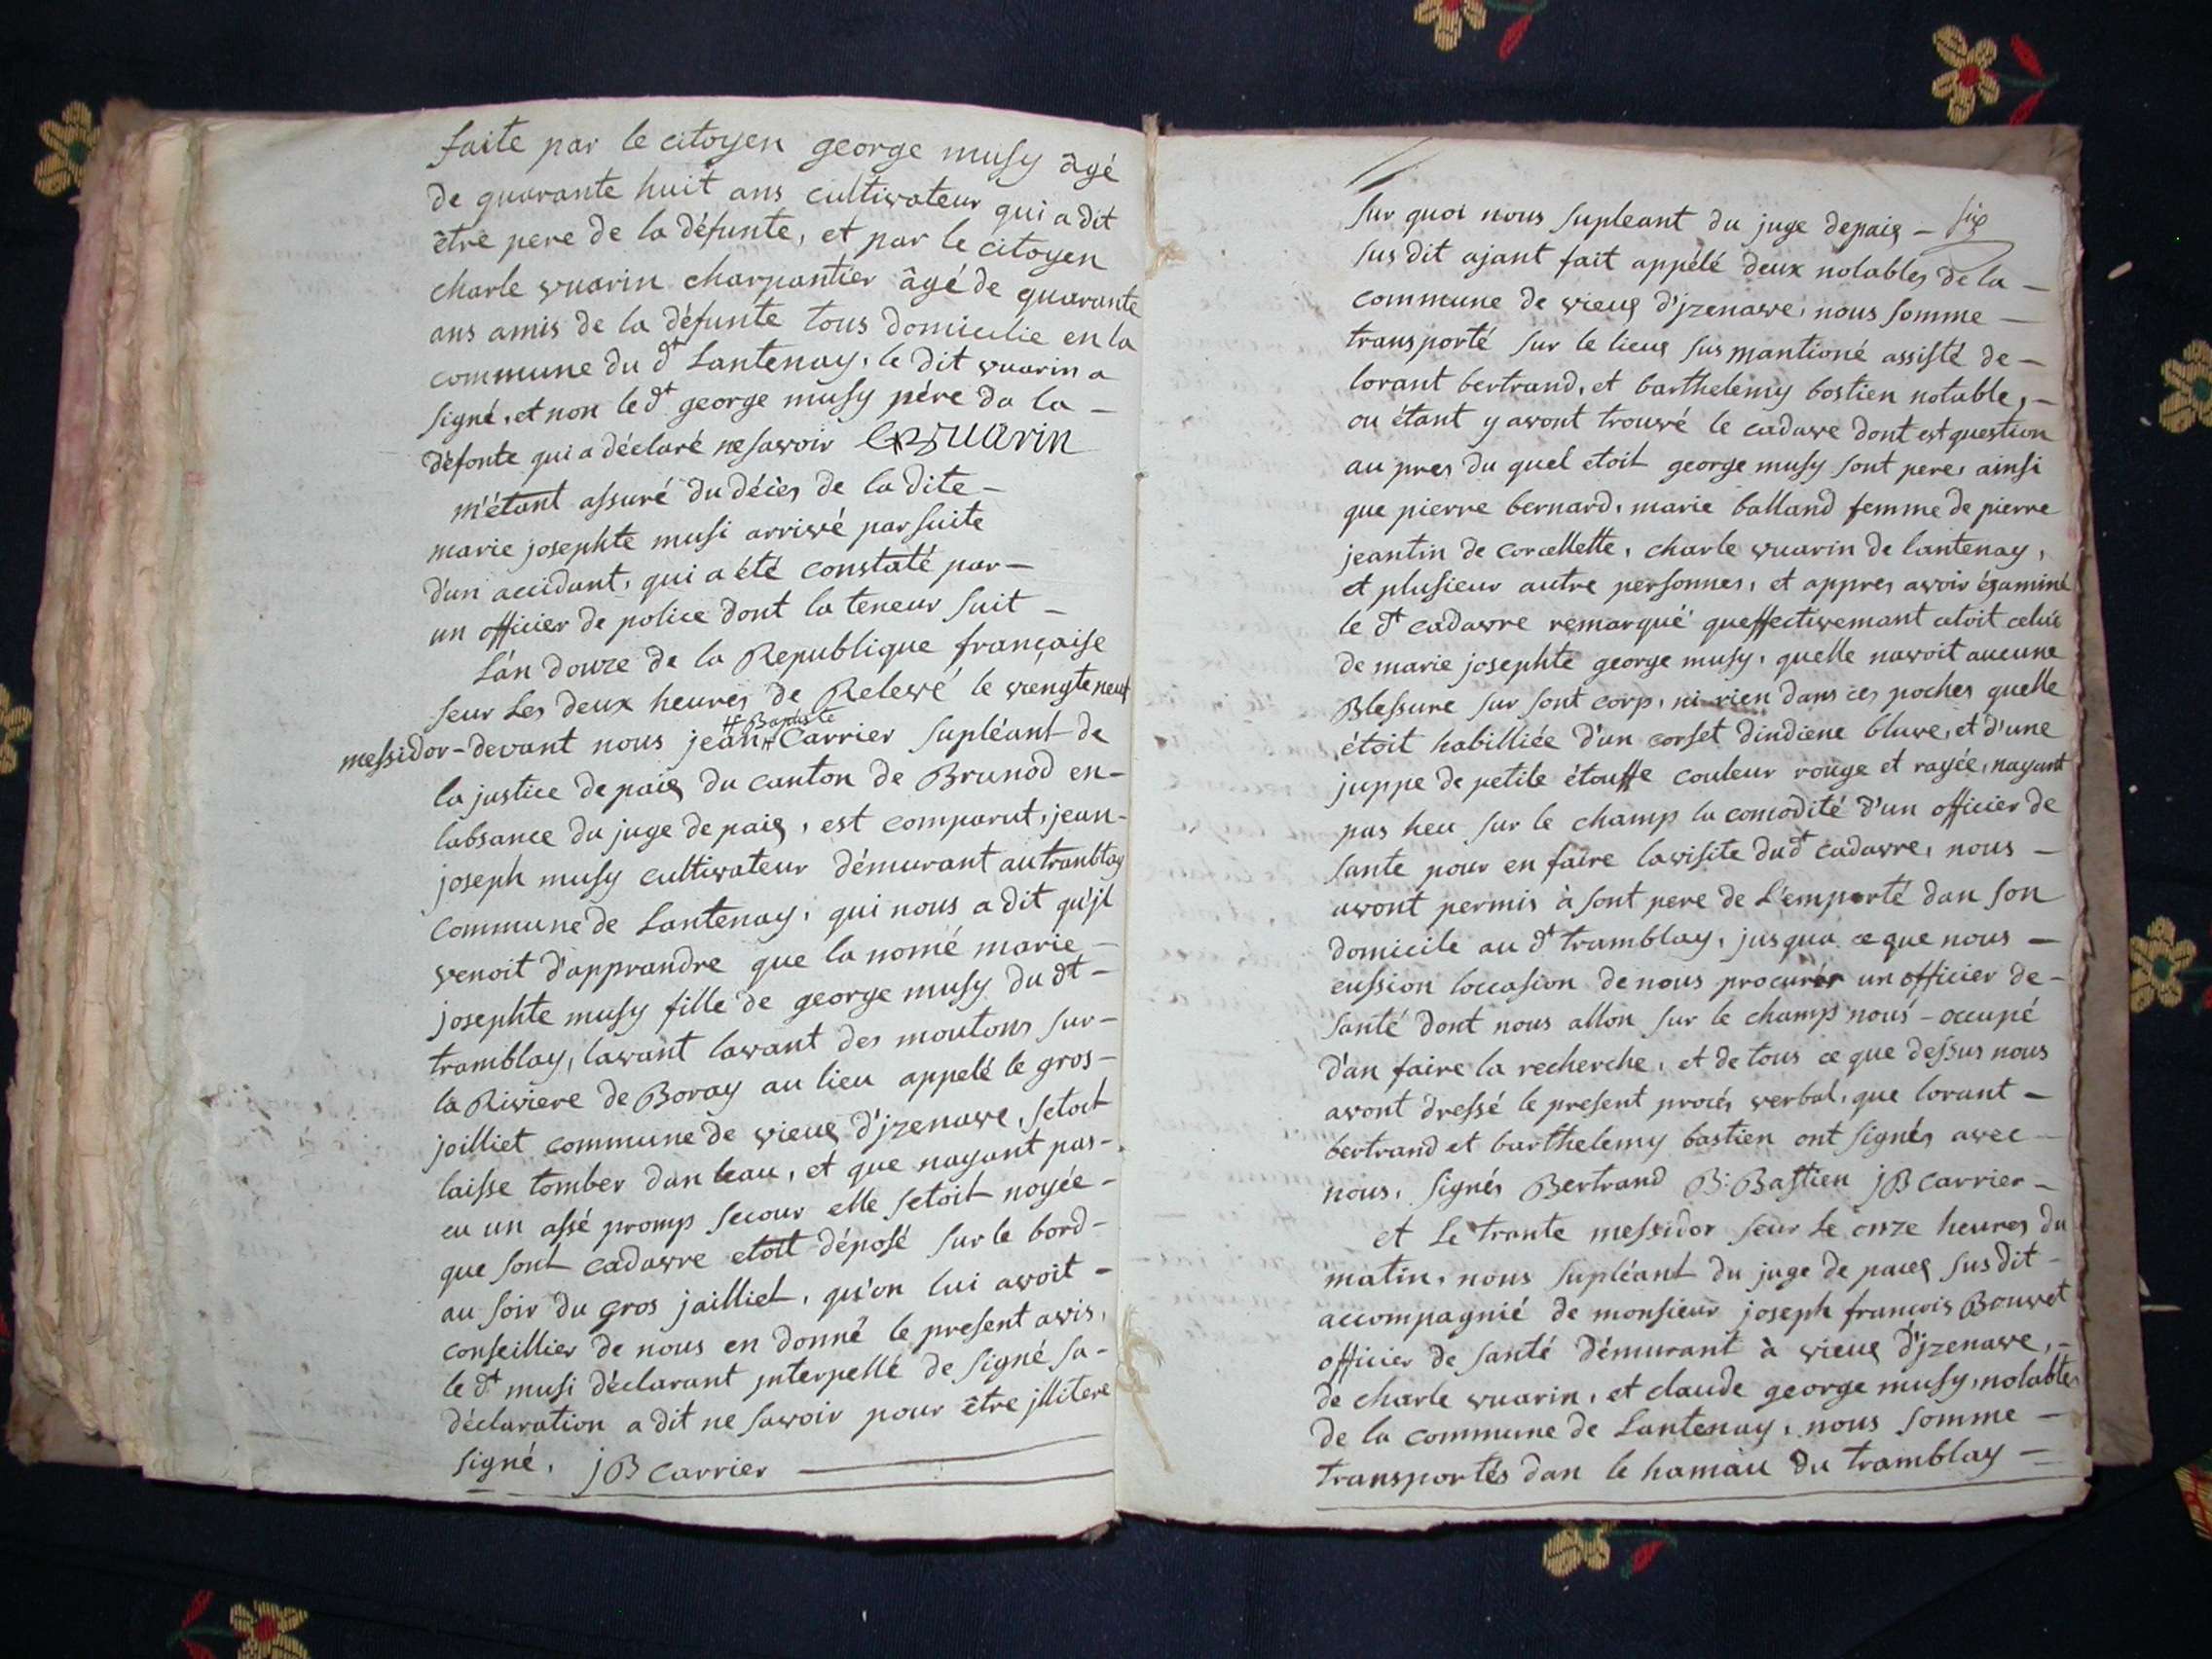 faite par le citoyen george musy âgé
de quarante huit ans cultivateur qui a dit
être pere de la défunte, et par le citoyen
charle vuarin charpantier âgé de quarante
ans amis de la défunte tous domicilie en la
commune du dt Lantenay, le dit vuarin a
signé, et non le dt george musy pére da la -
défonte qui a déclaré ne savoir vuarin
m'étant assuré du décès de la dite -
marie josephte musi arrivé par suite
d'un accidant, qui a été constaté par -
un officier de police dont la teneur suit -
L'an douze de la Republique française
seur Les deux heures de Relevé le vengteneuf
messidor - devant nous jean # Carrier supléant de
# Baptiste
la justice de paix du canton de Brunod en -
labsance du juge de paix, est comparut, jean -
joseph musy cultivateur démurant au tramblay
commune de Lantenay, qui nous a dit qu'jl
venoit d'apprandre que la nomé marie -
josephte musy fille de george musy du dt -
tramblay, lavant lavant des moutons sur -
la Riviere de Boray au lieu appelé le gros -
joilliet commune de vieux d'jzenave, setoit
laisse tomber dan leau, et que nayant pas -
eu un assé promp secour elle setoit noyée -
que sont cadavre etoit déposé sur le bord -
au soir du gros jailliet, qu'on lui avoit -
conseillier de nous en donné le present avis,
le dt musi déclarant jnterpellé de signé sa -
déclaration a dit ne savoir pour être jllitere
signé, jB Carrier
six
sur quoi nous supleant du juge de paix -
sus dit ajant fait appélé deux notables de la -
commune de vieux d'jzenave, nous somme -
transporté sur le lieux sus mantioné assisté de -
lorant bertrand, et barthelemy bostien notable, -
ou étant y avont trouvé le cadavre dont est question
au pres du quel etoit george musy sont pere, ainsi
que pierre bernard, marie balland femme de pierre
jeantin de corcellette, charle vuarin de lantenay,
et plusieur autre personnes, et appres avoir éxaminé
le dt cadavre remarqué queffectivemant cetoit celui
de marie josephte george musy, quelle navoit aucune
Blessure sur sont corp, ni rien dans ces poches quelle
étoit habilliée d'un corset dindiene bluve, et d'une
juppe de petite étouffe couleur rouge et rayée, nayant
pas heu sur le champ la comodité d'un officier de
sante pour en faire lavisite dudt cadavre, nous -
avont permis à sont pere de L'emporté dan son
domicile au dt tramblay, jusqua ce que nous -
eussion loccasion de nous procurér un officier de -
santé dont nous allon sur le champ nous - occupé
d'an faire la recherche, et de tous ce que dessus nous
avont dressé le present procés verbal, que lorant -
bertrand et barthelemy bastien ont signés avec -
nous, signés Bertrand B: Bastien jB Carrier -
et Le trante messidor seur Le onze heures du
matin, nous supléant du juge de paix sus dit -
accompagnié de monsieur joseph francois Bouvet
officier de santé démurant à vieux d'jzenave, -
de charle vuarin, et claude george musy, notables
de la commune de Lantenay, nous somme -
transportés dan le hamau du tramblay -